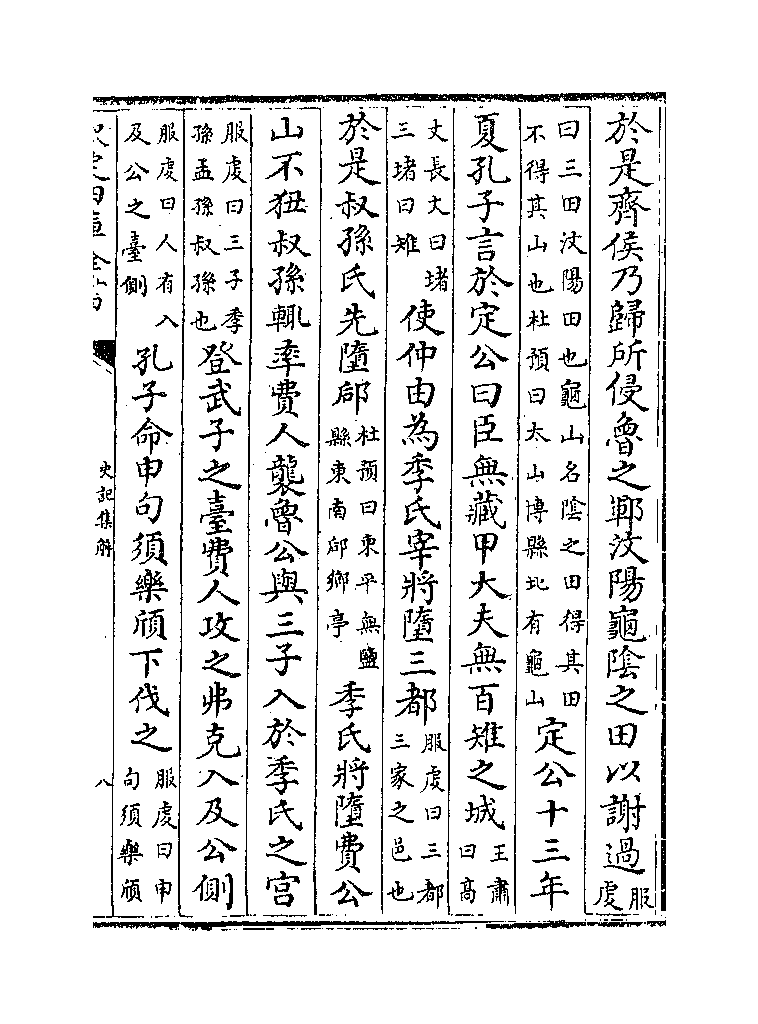 於是齊侯乃歸所侵魯之鄆汶陽龜陰之田以謝過服虔
曰三田汶陽田也龜山名陰之田得其田不得其山也杜預曰太山博縣北有龜山定公十三年
夏孔子言於定公曰臣無藏甲大夫無百雉之城王肅曰高
丈長丈曰堵三堵曰雉使仲由為季氏宰將墮三都服虔曰三都三家之邑也
於是叔孫氏先墮郈杜預曰東平無鹽縣東南郈鄉亭季氏將墮費公
山不狃叔孫輒率費人襲魯公與三子入於季氏之宮
服虔曰三子季孫孟孫叔孫也登武子之臺費人攻之弗克入及公側
服虔曰人有入及公之臺側孔子命申句須樂頎下伐之服虔曰申句須樂頎
史記集解
八